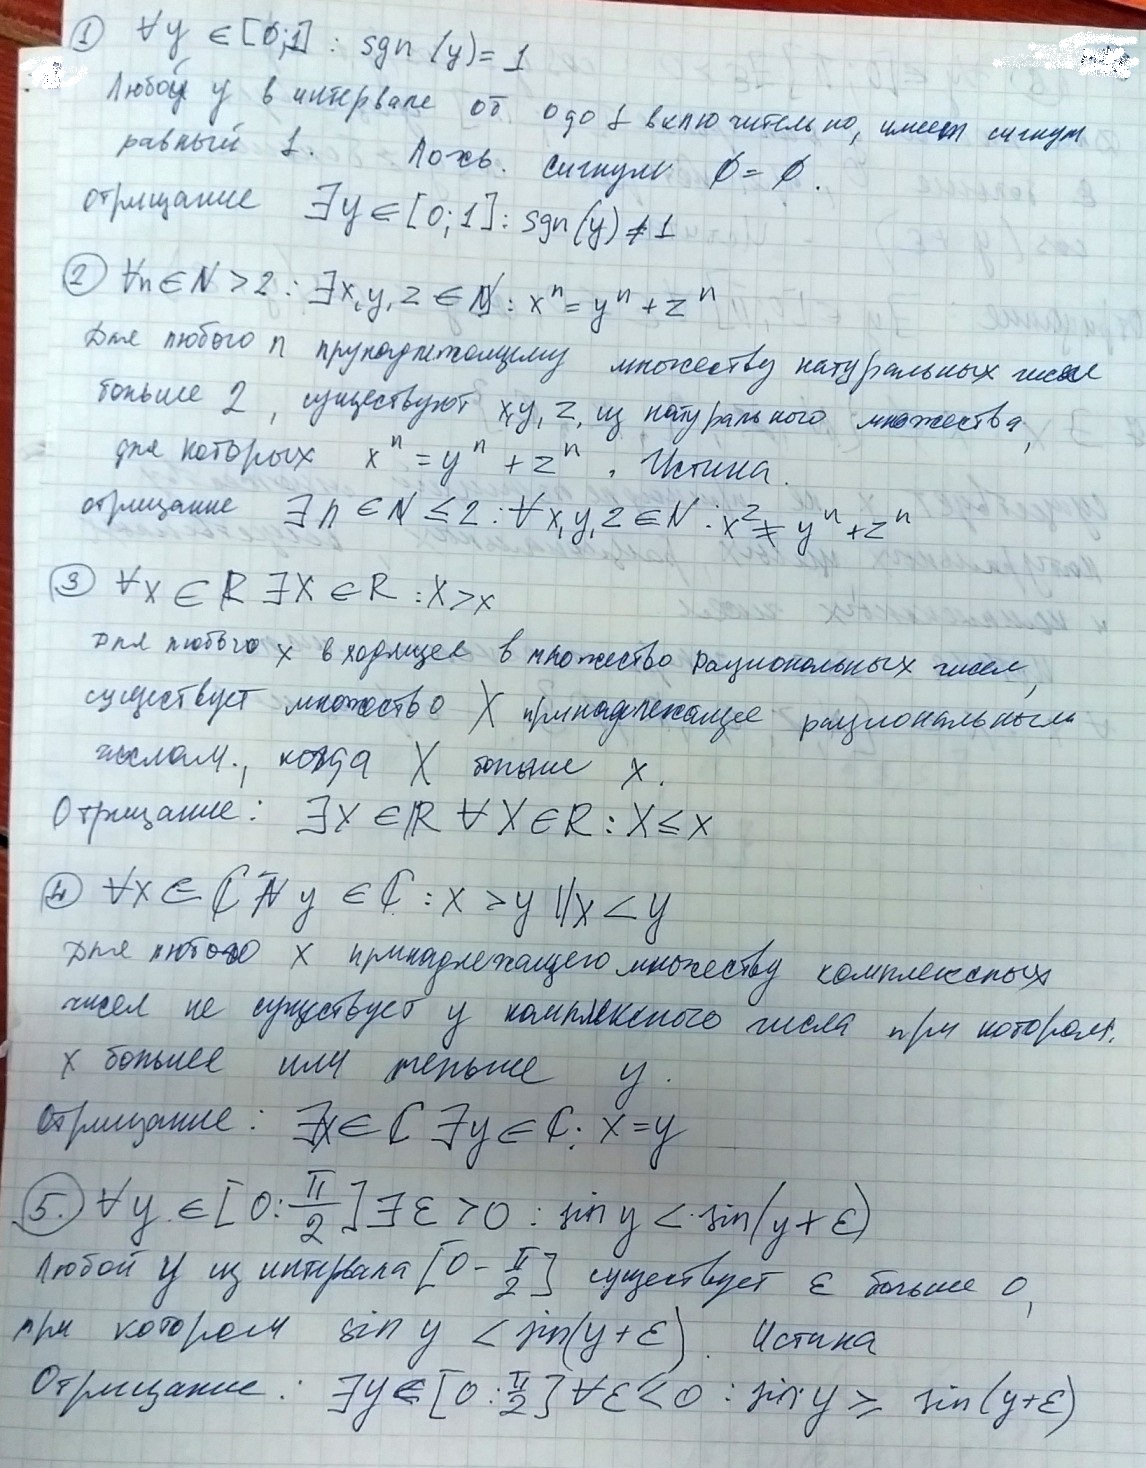 ① ∀y ∈ [0;1] : sgn (y) = 1
Любой y в интервале от 0 до 1 включительно, имеет сигнум
равный 1. Ложь. сигнум 0 = 0.
отрицание ∃y ∈ [0;1] : sgn(y) ≠ 1
② ∀n ∈ N > 2 : ∃x, y, z ∈ N : xⁿ = yⁿ + zⁿ
Для любого n принадлежащему множеству натуральных чисел
больше 2, существуют x, y, z, из натурального множества,
для которых xⁿ = yⁿ + zⁿ. Истина.
отрицание ∃n ∈ N ≤ 2 : ∀x, y, z ∈ N : x² ≠ yⁿ + zⁿ
③ ∀x ∈ R ∃X ∈ R : X > x
Для любого x входящее в множество рациональных чисел,
существует множество X принадлежащее рациональным
числам, когда X больше x.
Отрицание: ∃x ∈ R ∀X ∈ R : X ≤ x
④ ∀x ∈ ℂ ∄ y ∈ ℂ : x > y || x < y
Для любого x принадлежащего множеству комплексных
чисел не существует y комплексного числа при котором.
x больше или меньше y.
Отрицание: ∃x ∈ ℂ ∃y ∈ ℂ: x = y
5. ∀y ∈ [0:π/2] ∃ε > 0 : sin y < sin(y + ε)
Любой y из интервала [0 - π/2] существует ε больше 0,
при котором sin y < sin(y + ε). Истина
Отрицание: ∃y ∈ [0:π/2] ∀ε < 0 : sin y ≥ sin(y+ε)